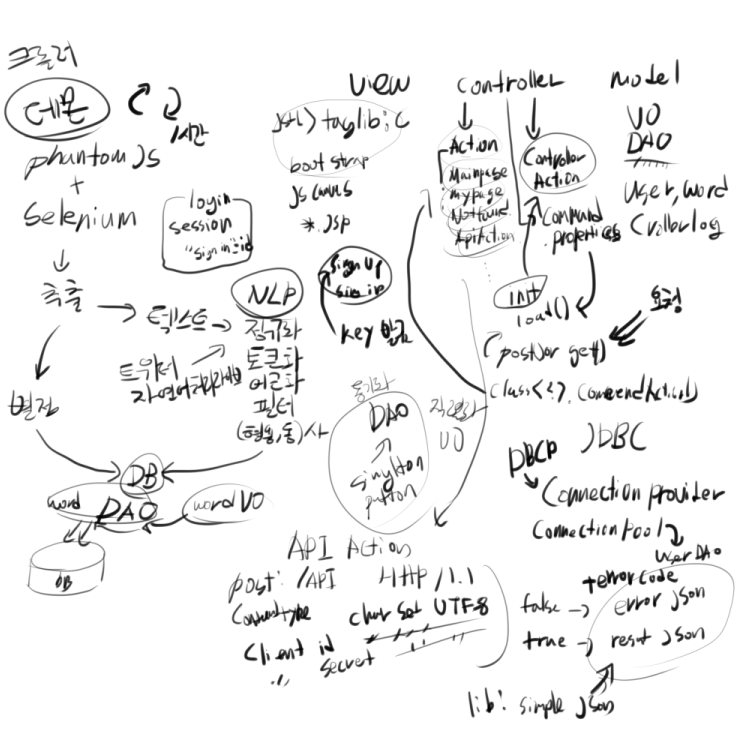 크롤러
데몬
1시간
phantom JS
+
Selenium
login
session
추출
텍스트
별점
NLP
정규화
토큰화
어근화
필터
(형용,동)사
트위터
DB
word
DAO
word VO
DB
view
JSTL > taglib: c
bootstrap
JS canvas
*.JSP
Sign up
sign in
key 발급
동기화
DAO
singleton
pattern
직렬화
VO
controller
Action
Mainpage
mypage
Notfound
ApiAction
Controller
Action
Command
.properties
init
load()
요청
post or get()
Class<?>, CommendAction()
model
VO
DAO
User, word
Crollerlog
JDBC
DBCP
Connection provider
Connection pool
User DAO
API Action
post: /API HTTP/1.1
Content type char set UTF-8
Client id
" secret
+errorcode
false → error Json
true → result Json
lib: simple Json